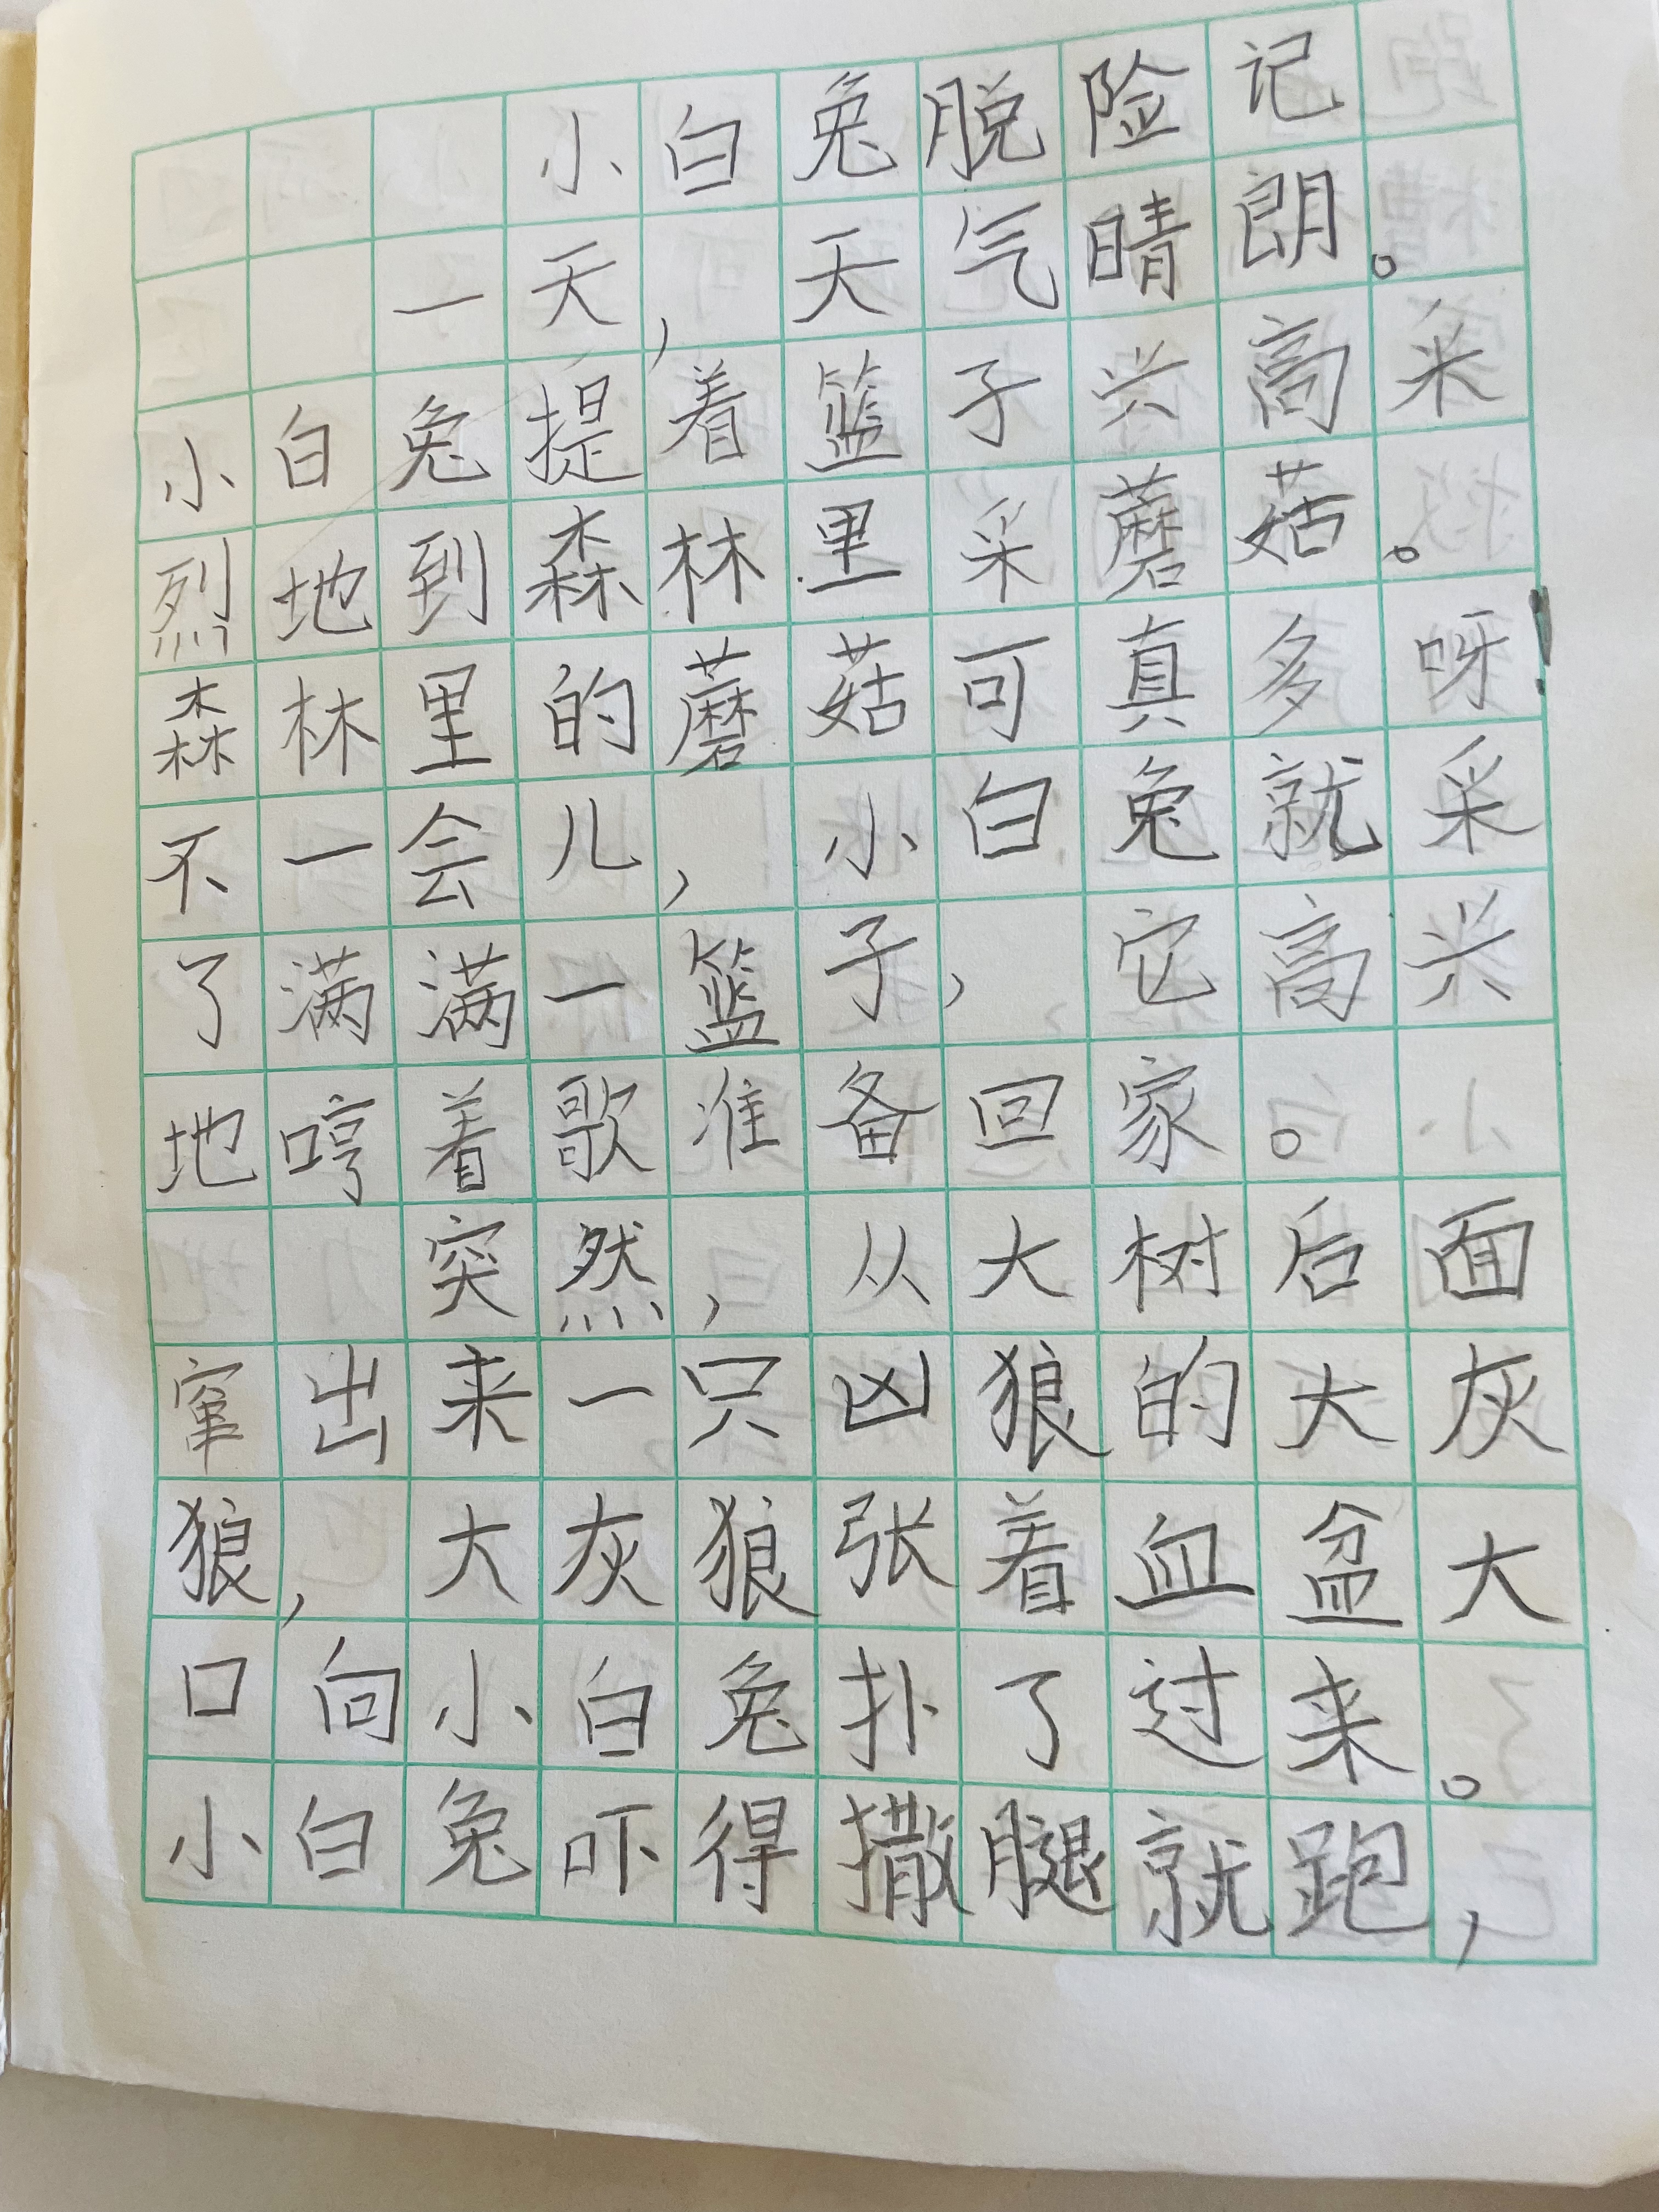 小白兔脱险记
一天，天气晴朗。
小白兔提着篮子兴高采
烈地到森林里采蘑菇。
森林里的蘑菇可真多呀！
不一会儿，小白兔就采
了满满一篮子，它高兴
地哼着歌准备回家。
突然，从大树后面
窜出来一只凶狼的大灰
狼，大灰狼张着血盆大
口向小白兔扑了过来。
小白兔吓得撒腿就跑，